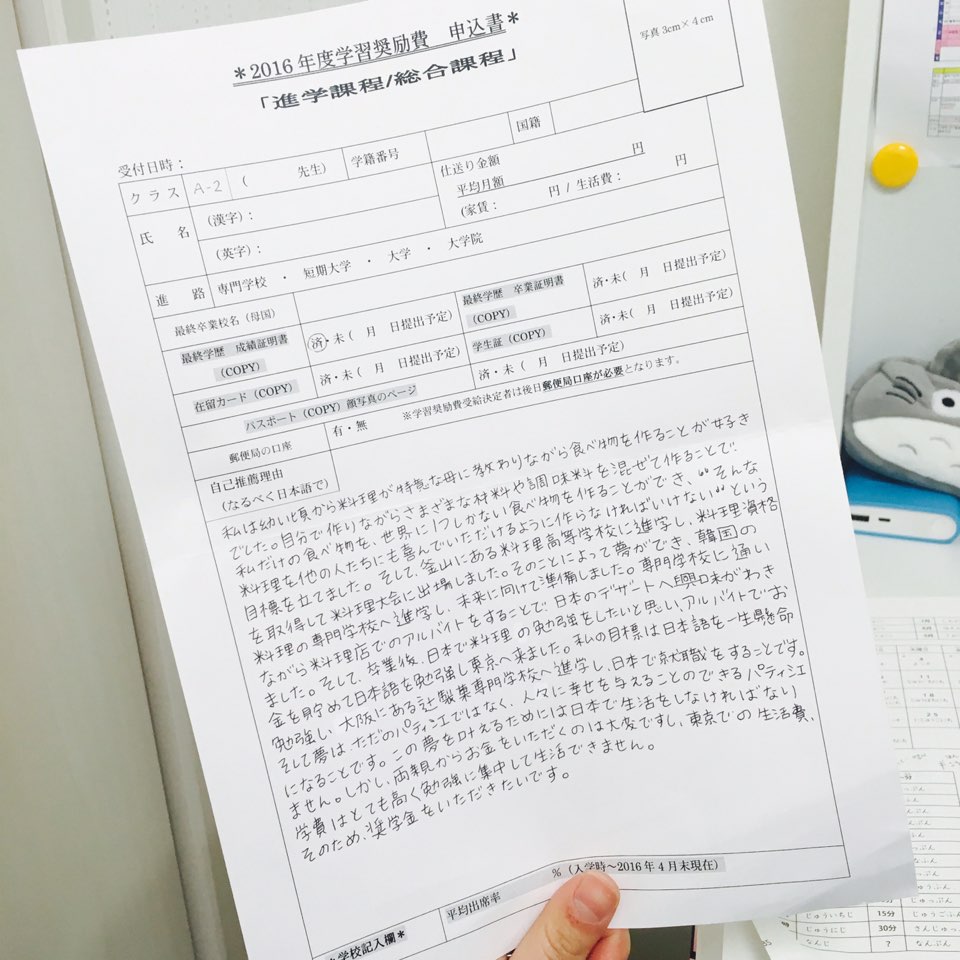 ＊2016年度学習奨励費　申込書＊
「進学課程/総合課程」
写真3cm×4cm
受付日時：
クラス A-2 (　　先生) 学籍番号 国籍
氏　名 (漢字)：
(英字)：
仕送り金額
平均月額　　円
(家賃：　　円 / 生活費：　　円
進　路 専門学校　・　短期大学　・　大学　・　大学院
最終卒業校名（母国）
最終学歴　成績証明書 (COPY) 済・未(　月　日提出予定)
最終学歴　卒業証明書 (COPY) 済・未(　月　日提出予定)
在留カード（COPY） 済・未(　月　日提出予定)
学生証（COPY） 済・未(　月　日提出予定)
パスポート（COPY）顔写真のページ 済・未(　月　日提出予定)
郵便局の口座 有・無　※学習奨励費受給決定者は後日郵便局口座が必要となります。
自己推薦理由
(なるべく日本語で)
私は幼い頃から料理が特意な母に教わりながら食べ物を作ることが好き
でした。自分で作りながらさまざまな材料や調味料を混ぜて作ることで、
私だけの食べ物を、世界に1つしかない食べ物を作ることができ、“そんな
料理を他の人たちにも喜んでいただけるように作らなければいけない”という
目標を立てました。そして、釜山にある料理高等学校に進学し、料理資格
を取得して料理大会に出場しました。そのことによって夢ができ、韓国の
料理の専門学校へ進学し、未来に向けて準備しました。専門学校に通い
ながら料理店でのアルバイトをすることで、日本のデザートへ興味がわき
ました。そして、卒業後、日本で料理の勉強をしたいと思い、アルバイトでお
金を貯めて日本語を勉強し東京へ来ました。私の目標は日本語を一生懸命
勉強し、大阪にある辻製菓専門学校へ進学し、日本で就職をすることです。
そして夢は、ただのパティシエではなく、人々に幸せを与えることのできるパティシエ
になることです。この夢を叶えるためには日本で生活をしなければない
ません。しかし、両親からお金をいただくのは大変ですし、東京での生活費、
学費はとても高く勉強に集中して生活できません。
そのため、奨学金をいただきたいです。
平均出席率　　％（入学時～2016年4月末現在）
学校記入欄＊
じゅういちじ 15分 じゅうごふん
じゅうにじ 30分
なんじ ? なんぷん